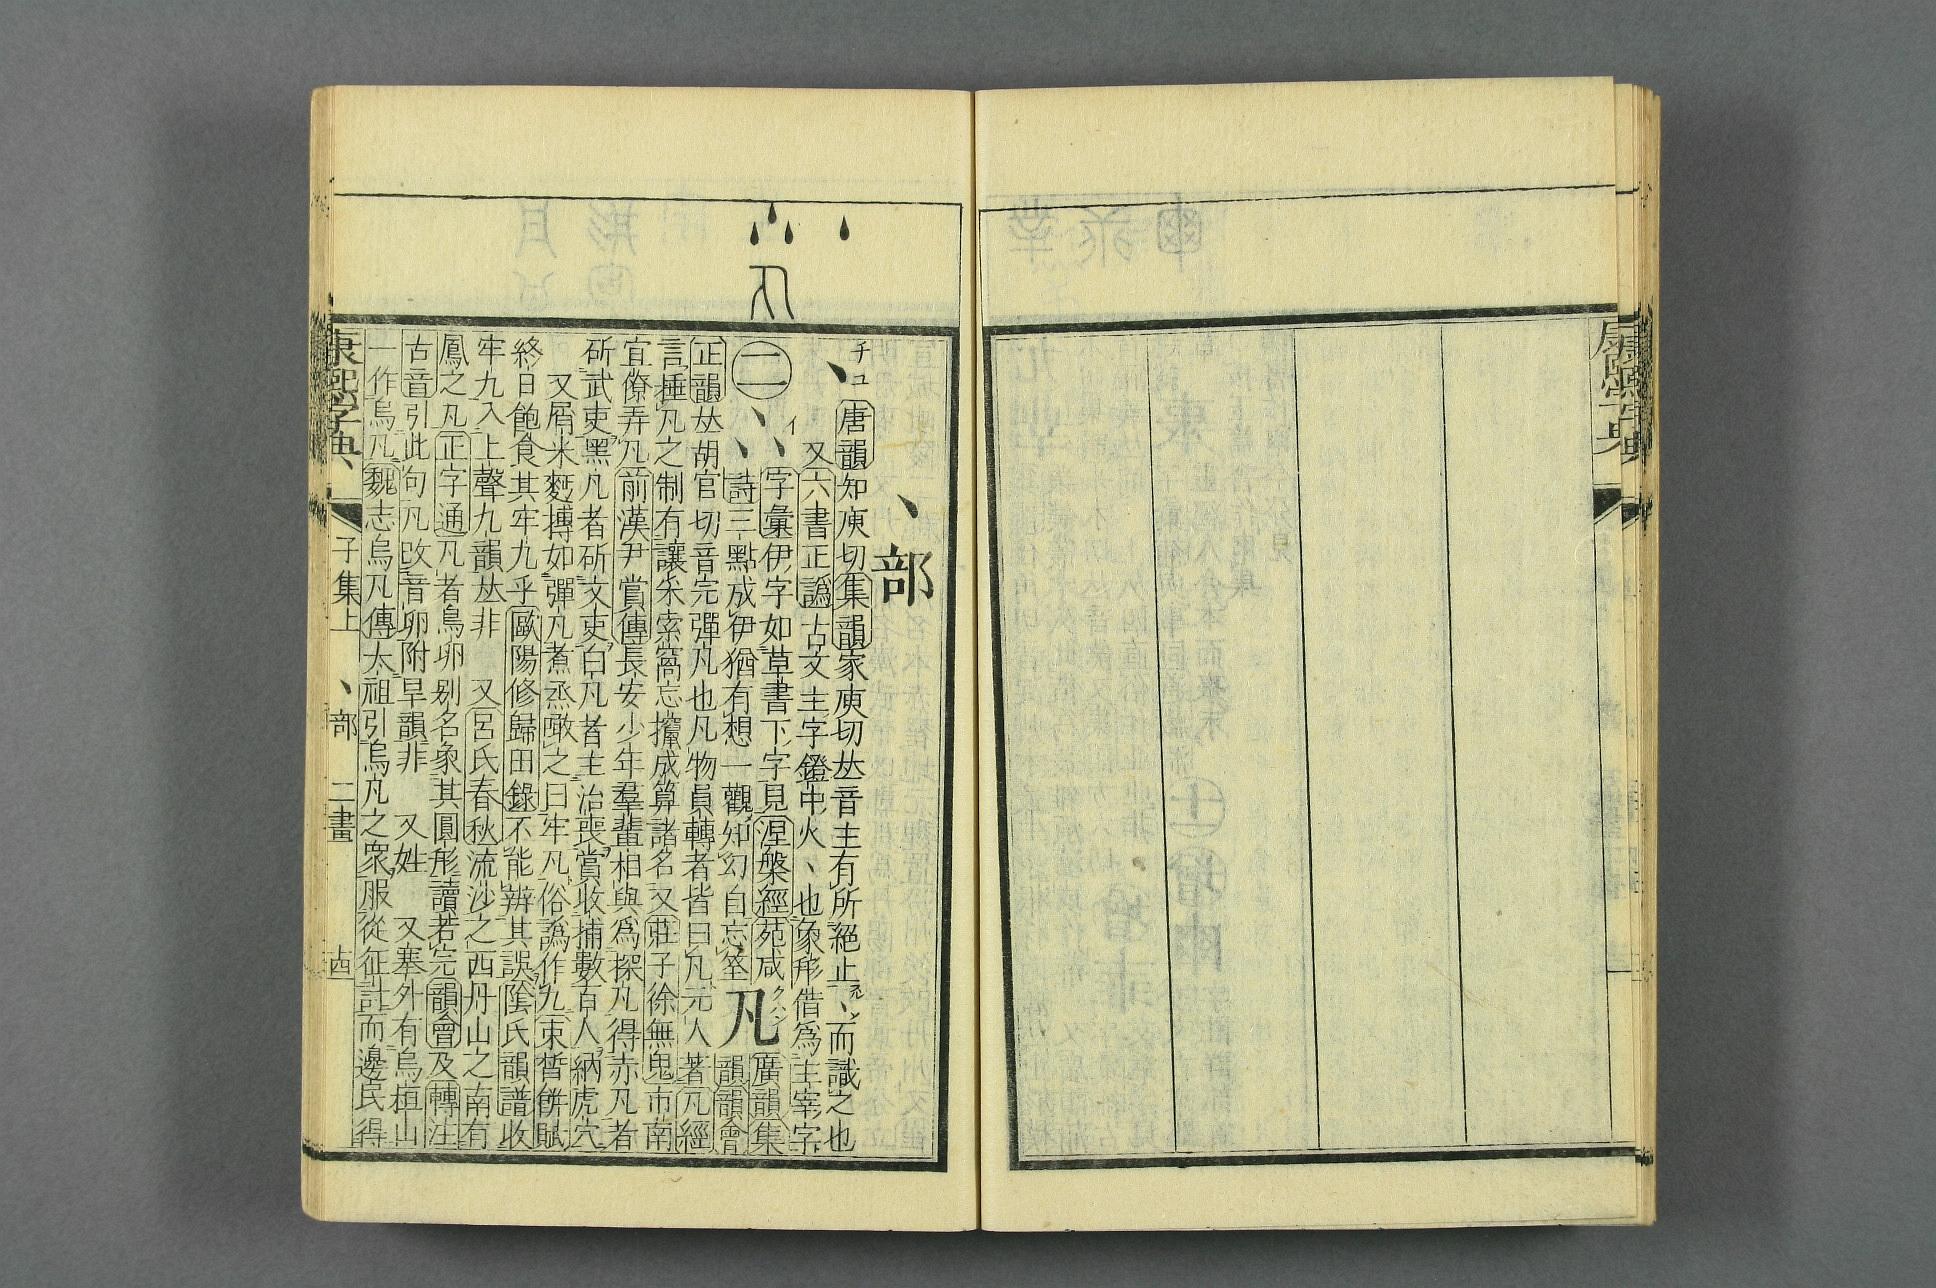 康熙字典
、部
、
チユ
唐韻知庾切集韻家庾切𠀤音主有所絕止、而識之也
又六書正譌古文主字鐙中火、也象形借爲主宰字
二
イ
字彙伊字如草書下字見涅槃經苑咸
詩三點成伊猶有想一觀如幻自忘筌
丸
クハン
廣韻集
韻韻會
正韻𠀤胡官切音完彈丸也凡物員轉者皆曰丸元人著丸經
言捶丸之制有讓采索窩忘攛成算諸名又莊子徐無鬼市南
宜僚弄丸前漢尹賞傳長安少年羣輩相與爲探丸得赤丸者
斫武吏黑丸者斫文吏白丸者主治喪賞收捕數百人納虎穴
又屑米麪摶如彈丸煮烝噉之曰牢丸俗譌作九束晳餠賦
終日飽食其牢九乎歐陽修歸田錄不能辨其誤陰氏韻譜收
牢九入上聲九韻𠀤非 又呂氏春秋流沙之西丹山之南有
鳳之丸正字通丸者鳥卵别名象其圓形讀若完韻會及轉注
古音引此句丸改音卵附旱韻非 又姓 又塞外有烏桓山
一作烏丸魏志烏丸傳太祖引烏丸之衆服從征討而邊民得
康熙字典 子集上 、部 二畫 十四